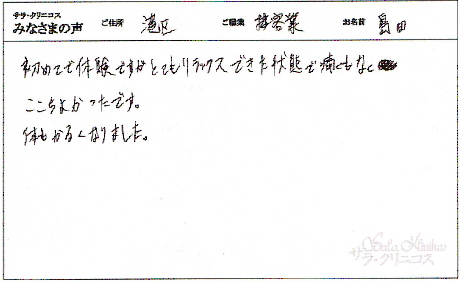 サラ・クリニコス
みなさまの声 ご住所 港区 ご職業 接客業 お名前 島田
初めてで体験ですがとてもリラックスできた状態で痛くもなく
ここちよかったです。
体もかるくなりました。
Sala Klinikos
サラ・クリニコス